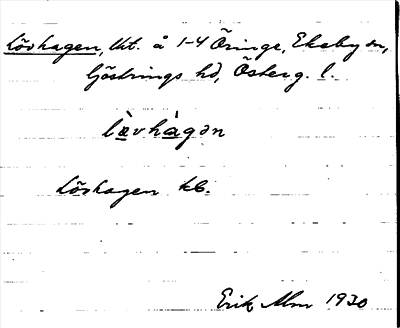 Lövhagen, lht. å 1-4 Öringe, Ekeby sn,
Göstrings hd, Österg. l.
lə̀vhàgən
Lövhagen kb.
Erik Alm 1930